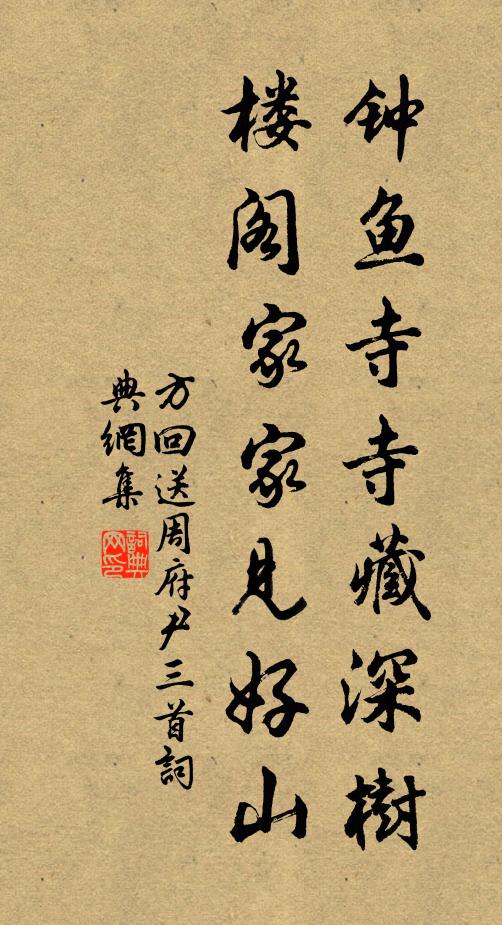 钟鱼寺寺藏深樹
楼阁家家见好山
方回送周府尹三首詞
典網集
詞典网印